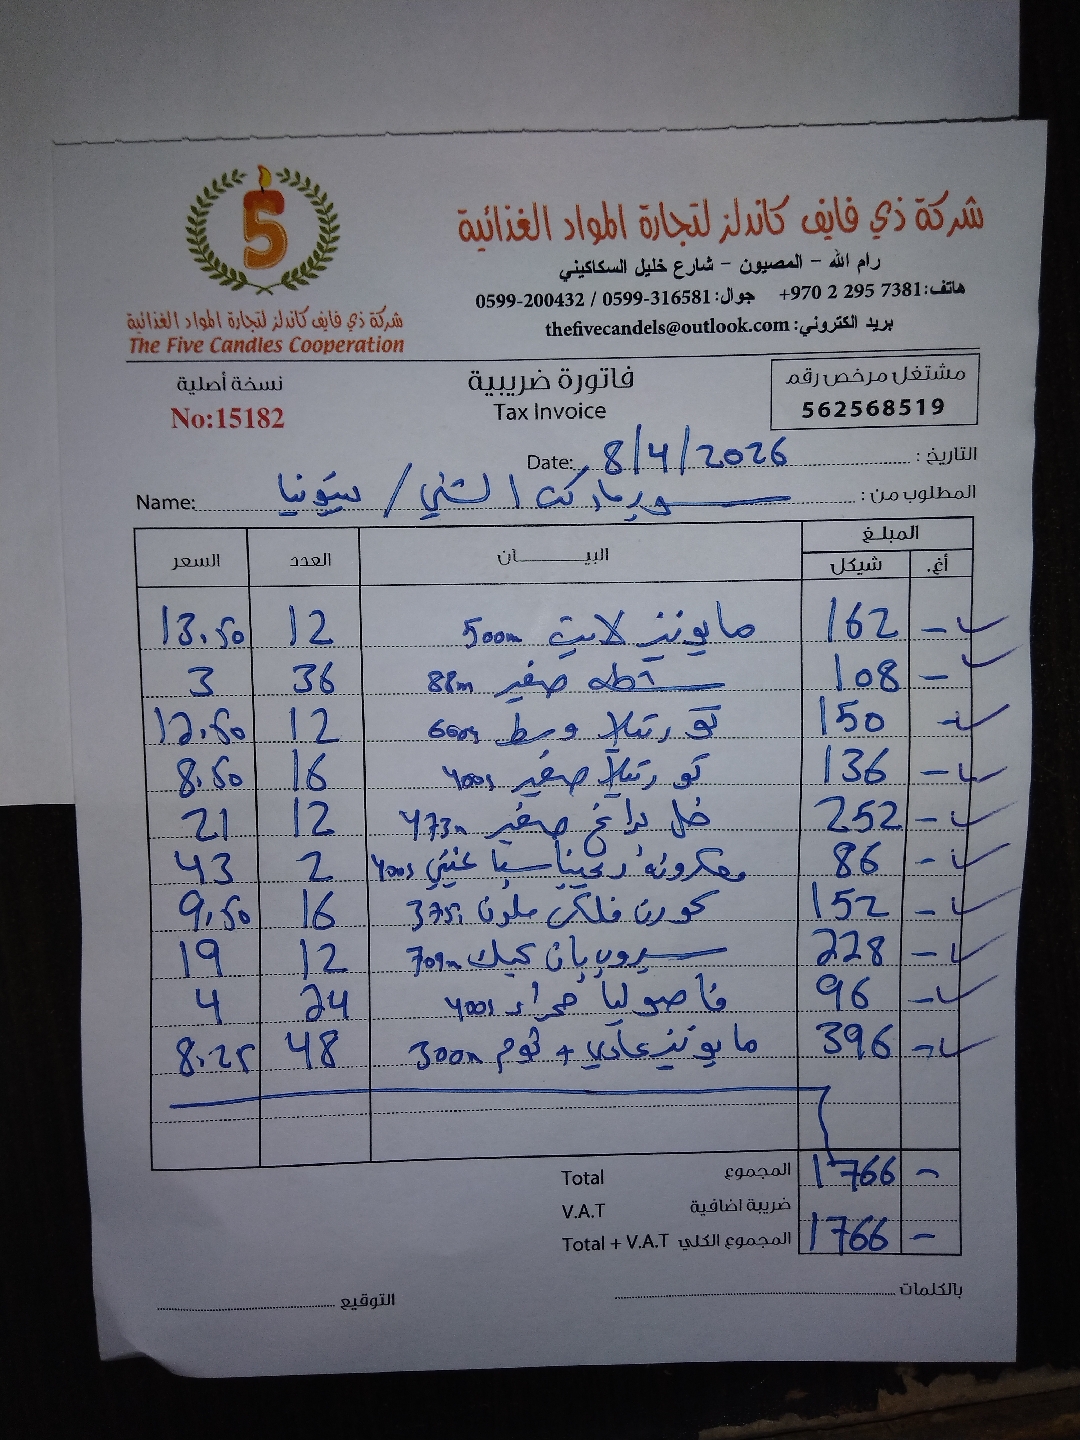 5
شركة ذي فايف كاندلز لتجارة المواد الغذائية
The Five Candles Cooperation
شركة ذي فايف كاندلز لتجارة المواد الغذائية
رام الله - المصيون - شارع خليل السكاكيني
هاتف: +970 2 295 7381 جوال: 0599-316581 / 0599-200432
بريد الكتروني: thefivecandels@outlook.com
نسخة أصلية
No:15182
فاتورة ضريبية
Tax Invoice
مشتغل مرخص رقم
562568519
التاريخ : 8/4/2026 Date:
المطلوب من : سوبرماركت الشني / Name:
المبلغ البيـــــــان العدد السعر
أغ. شيكل
- 162 مايونيز لايت 500m 12 13.50
- 108 شطه صغير 88m 36 3
- 150 وسط 12 12.50
- 136 صغير 400g 16 8.50
- 252 خل صغير 473m 12 21
- 86 معكرونه 400g 2 43
- 152 كورن فلكس ملون 375g 16 9.50
- 228 سيروب بان كيك 709m 12 19
- 96 فاصوليا حمراء 400g 24 4
- 396 مايونيز عادي + ثوم 300m 48 8.25
Total المجموع 1766 -
V.A.T ضريبة اضافية
Total + V.A.T المجموع الكلي 1766 -
بالكلمات
التوقيع